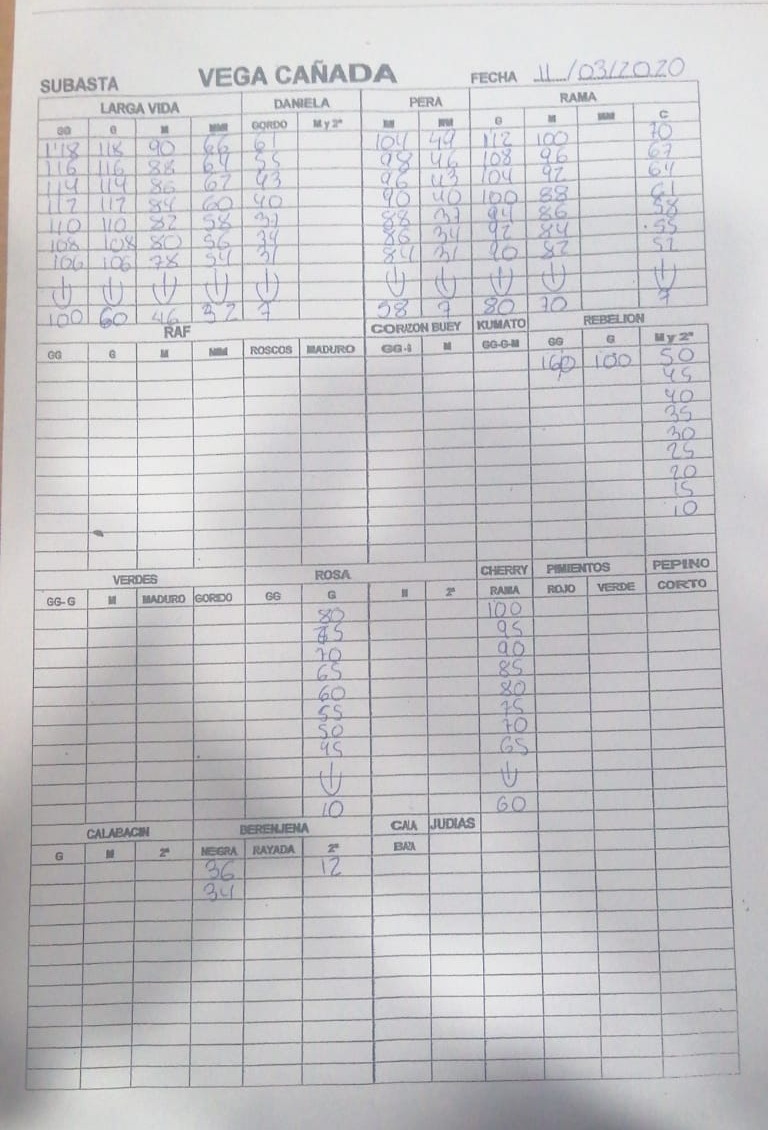 SUBASTA VEGA CAÑADA FECHA 11/03/2020
LARGA VIDA DANIELA PERA RAMA
GG G M MM GORDO M y 2ª M MM G M MM C
118 118 90 66 61 104 49 112 100 70
116 116 88 64 55 98 46 108 96 67
114 114 86 62 43 96 43 104 92 64
112 112 84 60 40 90 40 100 88 61
110 110 82 58 37 88 37 94 86 58
108 108 80 56 34 86 34 92 84 55
106 106 78 54 31 84 31 90 82 52
100 60 46 32 7 58 7 80 70 7
RAF CORZON BUEY KUMATO REBELION
GG G M MM ROSCOS MADURO GG-G M GG-G-M GG G M y 2ª
160 100 50
45
40
35
30
25
20
15
10
VERDES ROSA CHERRY PIMIENTOS PEPINO
GG-G M MADURO GORDO GG G M 2ª RAMA ROJO VERDE CORTO
80 100
75 95
70 90
65 85
60 80
55 75
50 70
45 65
10 60
CALABACIN BERENJENA CAIA JUDIAS
G M 2ª NEGRA RAYADA 2ª BAJA
36 12
34